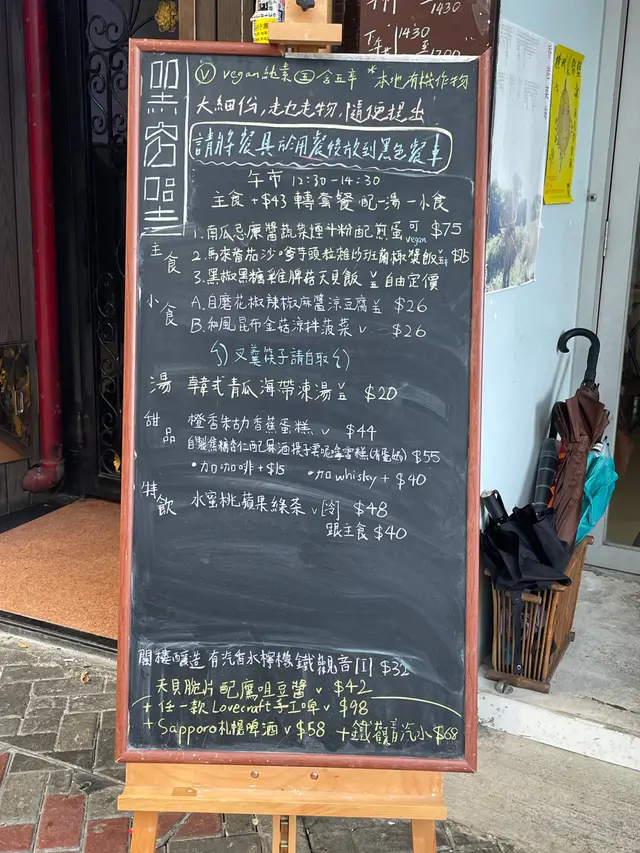 1430
1430
Ⓥ vegan純素 ㊄含五辛 *本地有機作物
大細份,走乜走物,隨便提出
請將餐具於用餐後放到黑色餐車
午市 12:30-14:30
主食 +$43 轉套餐 配一湯 一小食
主食
1. 南瓜忌廉醬蔬菜煙斗粉配煎蛋 可vegan $75
2. 馬來番茄沙嗲芋頭粒雜炒班蘭椰漿飯 $75
3. 黑椒黑糖杂雎脾菇天貝飯 自由定價
小食
A. 自磨花椒辣椒麻醬涼豆腐 $26
B. 和風昆布金菇涼拌菠菜 v $26
叉羹筷子請自取
湯 韓式青瓜海帶凍湯 $20
甜品
橙香朱古力香蕉蛋糕 v $44
自製焦糖杏仁配麻酒提子雲呢拿雪糕(有蛋奶) $55
•加咖啡+$15 •加whisky+$40
特飲 水蜜桃蘋果綠茶 v [冷] $48
跟主食 $40
閣樓釀造 有汽香水檸檬鐵觀音[1] $32
天貝脆片配鷹咀豆醬 v $42
+ 任一款Lovecraft手工啤 v $98
+ Sapporo札幌啤酒 v $58 +鐵觀音汽小 $68